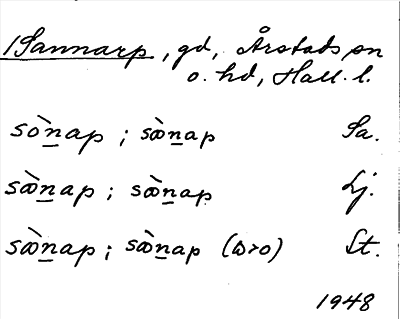 /Sannarp, gd, Årstads sn
o. hd, Hall. l.
sòn̲ap ; sæ̀n̲ap Sa.
sæ̀n̲ap ; sæ̀n̲ap Lj.
sæ̀n̲ap ; sæ̀n̲ap (æ>o) St.
1948